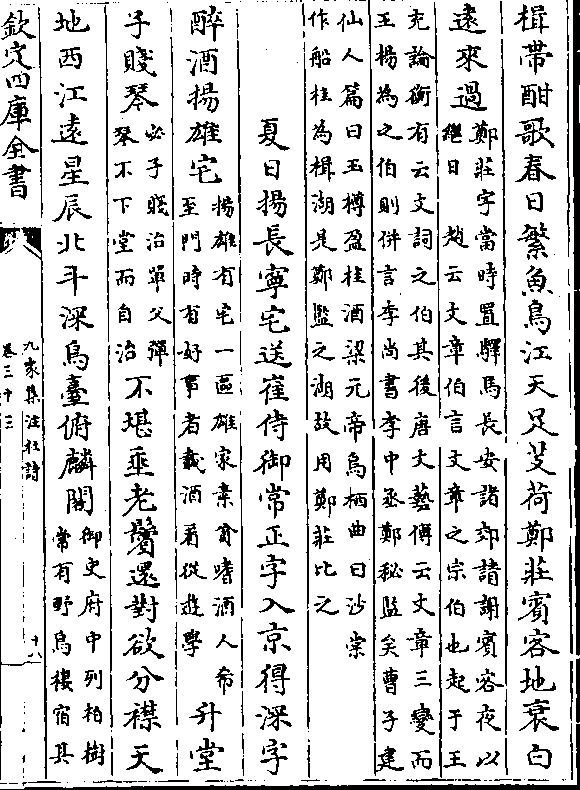 楫帶酣歌春日繁魚鳥江天足芰荷鄭莊賓客地衰白
遠來過
鄭莊字當時置驛馬長安諸郊諸謝賓客夜以
繼日 趙云文章伯言文章之宗伯也起于王
充論衡有云文詞之伯其後唐文藝傳云文章三變而
王楊為之伯則併言李尚書李中丞鄭秘監矣曹子建
仙人篇曰玉樽盈桂酒梁元帝烏栖曲曰沙棠
作船桂為楫湖是鄭監之湖故用鄭莊比之
夏日揚長寧宅送崔侍御常正字入京得深字
醉酒揚雄宅
揚雄有宅一區雄家素貧嗜酒人希
至門時有好事者載酒肴從遊學
升堂
子賤琴
必子賤治單父彈
琴不下堂而自治
不堪垂老鬢還對欲分襟天
地西江遠星辰北斗深烏臺俯麟閣
御史府中列柏樹
常有野烏棲宿其
欽定四庫全書
九家集注杜詩
卷三十三
十八